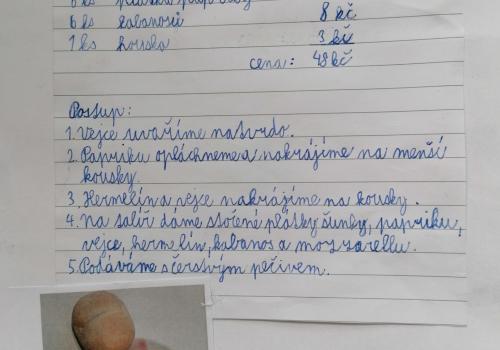 6 ks kabanosů 8 kč
1 ks houska 3 kč
cena: 48 kč
Postup:
1. Vejce uvaříme natvrdo.
2. Papriku opláchneme a nakrájíme na menší
kousky.
3. Hermelín a vejce nakrájíme na kousky.
4. Na talíř dáme stočené plátky šunky, papriku,
vejce, hermelín, kabanos a mozzarellu.
5. Podáváme s čerstvým pečivem.